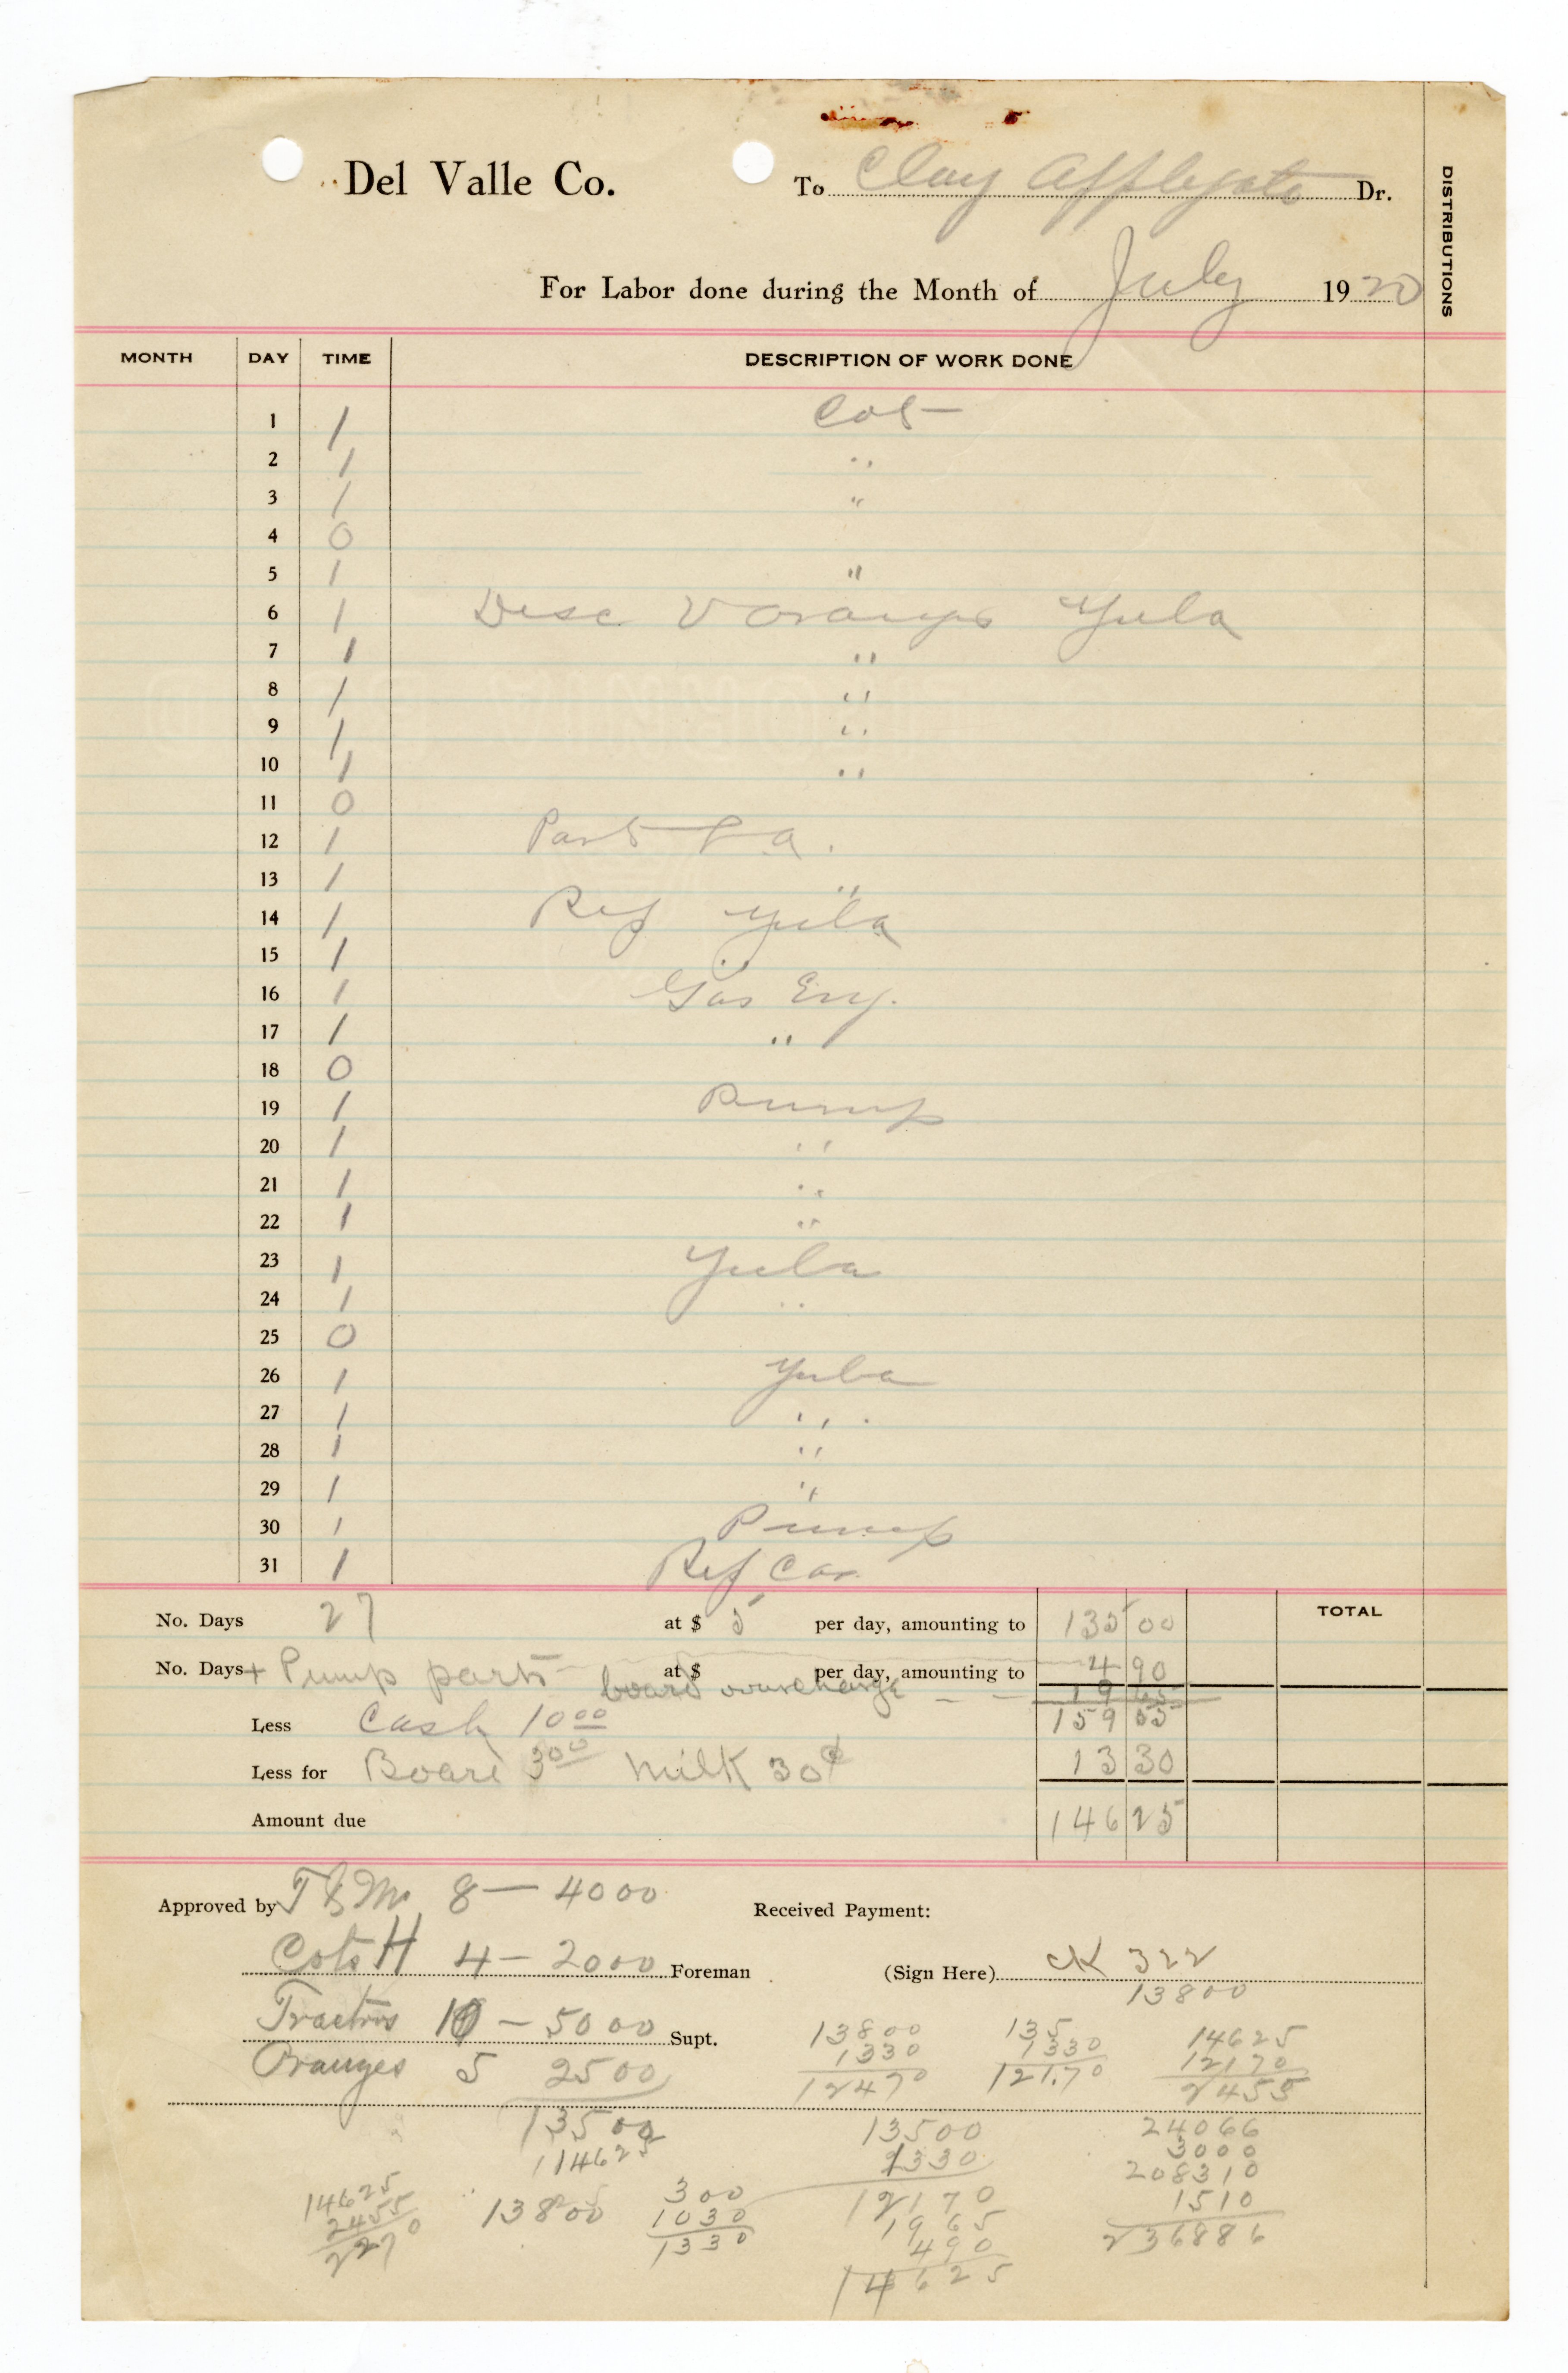 Del Valle Co. To Clay Applegate Dr.
DISTRIBUTIONS
For Labor done during the Month of July 1920
MONTH DAY TIME DESCRIPTION OF WORK DONE
1 1 Cot
2 1 "
3 1 "
4 0
5 1 "
6 1 Disc V Oranges Yuba
7 1 "
8 1 "
9 1 "
10 1 "
11 0
12 1 Part
13 1 "
14 1 Rep Yuba
15 1 "
16 1 Gas Eng.
17 1 "
18 0
19 1 Pump
20 1 "
21 1 "
22 1 "
23 1 Yuba
24 1 "
25 0
26 1 Yuba
27 1 "
28 1 "
29 1 "
30 1 Pump
31 1 Rep Car
TOTAL
No. Days 27 at $ 5 per day, amounting to 135 00
No. Days + Pump parts at $ per day, amounting to 4 90
board overcharge - - 19 65
Less Cash 10 00 159 55
Less for Board 3 00 Milk 30¢ 13 30
Amount due 146 25
Approved by 8 — 4000 Received Payment:
Cots H 4 — 2000 Foreman (Sign Here) CK 322
13800
Tractors 10 — 5000 Supt.
Oranges 5 2500
13500
114625
13800
1330
12470
135
1330
121.70
14625
12170
2455
14625
2455
13800
300
1030
1330
13500
1330
12170
1965
490
14625
24066
3000
208310
1510
236886